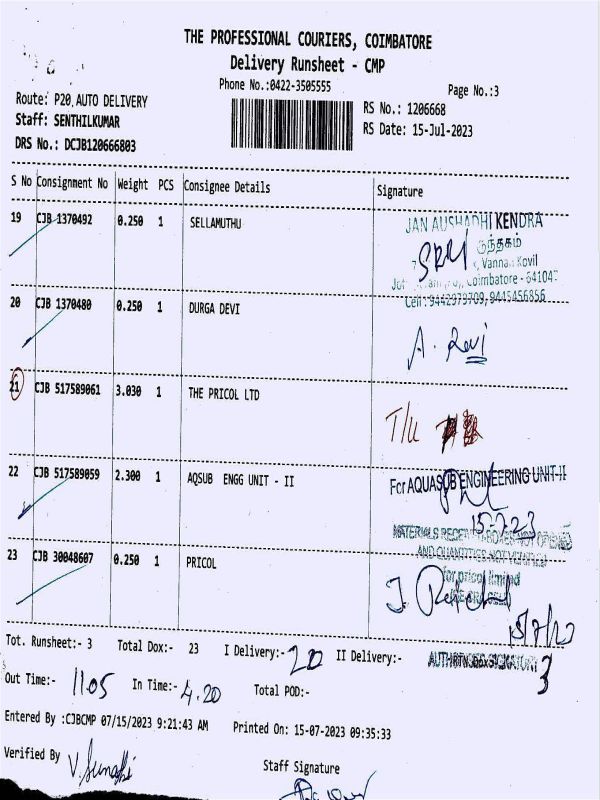 THE PROFESSIONAL COURIERS, COIMBATORE
Delivery Runsheet - CMP
Phone No.:0422-3505555
Page No.:3
Route: P20,AUTO DELIVERY
RS No.: 1206668
Staff: SENTHILKUMAR
RS Date: 15-Jul-2023
DRS No.: DCJB120666803
S No Consignment No Weight PCS Consignee Details Signature
19 CJB 1370492 0.250 1 SELLAMUTHU
JAN AUSHADHI KENDRA
Vanna Kovil
Coimbatore - 64104
Cell : 9442979709, 9445456856
20 CJB 1370480 0.250 1 DURGA DEVI
A. Ravi
21 CJB 517589061 3.030 1 THE PRICOL LTD
T/U
22 CJB 517589059 2.300 1 AQSUB ENGG UNIT - II
For AQUASUB ENGINEERING UNIT-II
15-7-23
AND QUANTITIES NOT VERIFIED
23 CJB 30048607 0.250 1 PRICOL
for pricol limited
15/7/23
Tot. Runsheet:- 3 Total Dox:- 23 I Delivery:- 20 II Delivery:- 3
AUTHORISED SIGNATORY
Out Time:- 11.05 In Time:- 4.20 Total POD:-
Entered By :CJBCMP 07/15/2023 9:21:43 AM Printed On: 15-07-2023 09:35:33
Verified By
Staff Signature